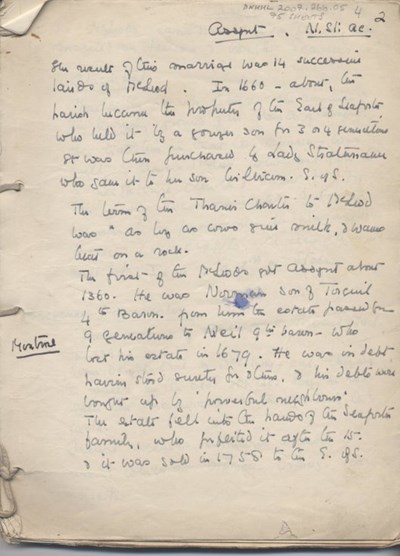 DNHHL 2007.266.05
75 sheets
4
2
Assynt. N. St. Ac.
The result of this marriage was 14 successive
lairds of McLeod. In 1660 – about, the
parish became the property of the Earl of Seaforth
who held it by a younger son for 3 or 4 generations
It was then purchased by Lady Strathnaver
who gave it to her son William. E. of S.
The term of the Thanes Charter to McLeod
was "as long as cows give milk, & waves
beat on a rock.
The first of the McLeods got Assynt about
1360. He was Norman son of Torcuil
4th Baron. from him the estate passed for
9 generations to Neil 9th baron – who
lost his estate in 1679. He was in debt
having stood surety for others, & his debts were
bought up by 'powerful neighbours'
The estate fell into the hands of the Seaforth
family, who forfeited it after the 15.
& it was sold in 1758 to the E. of S.
Montrose